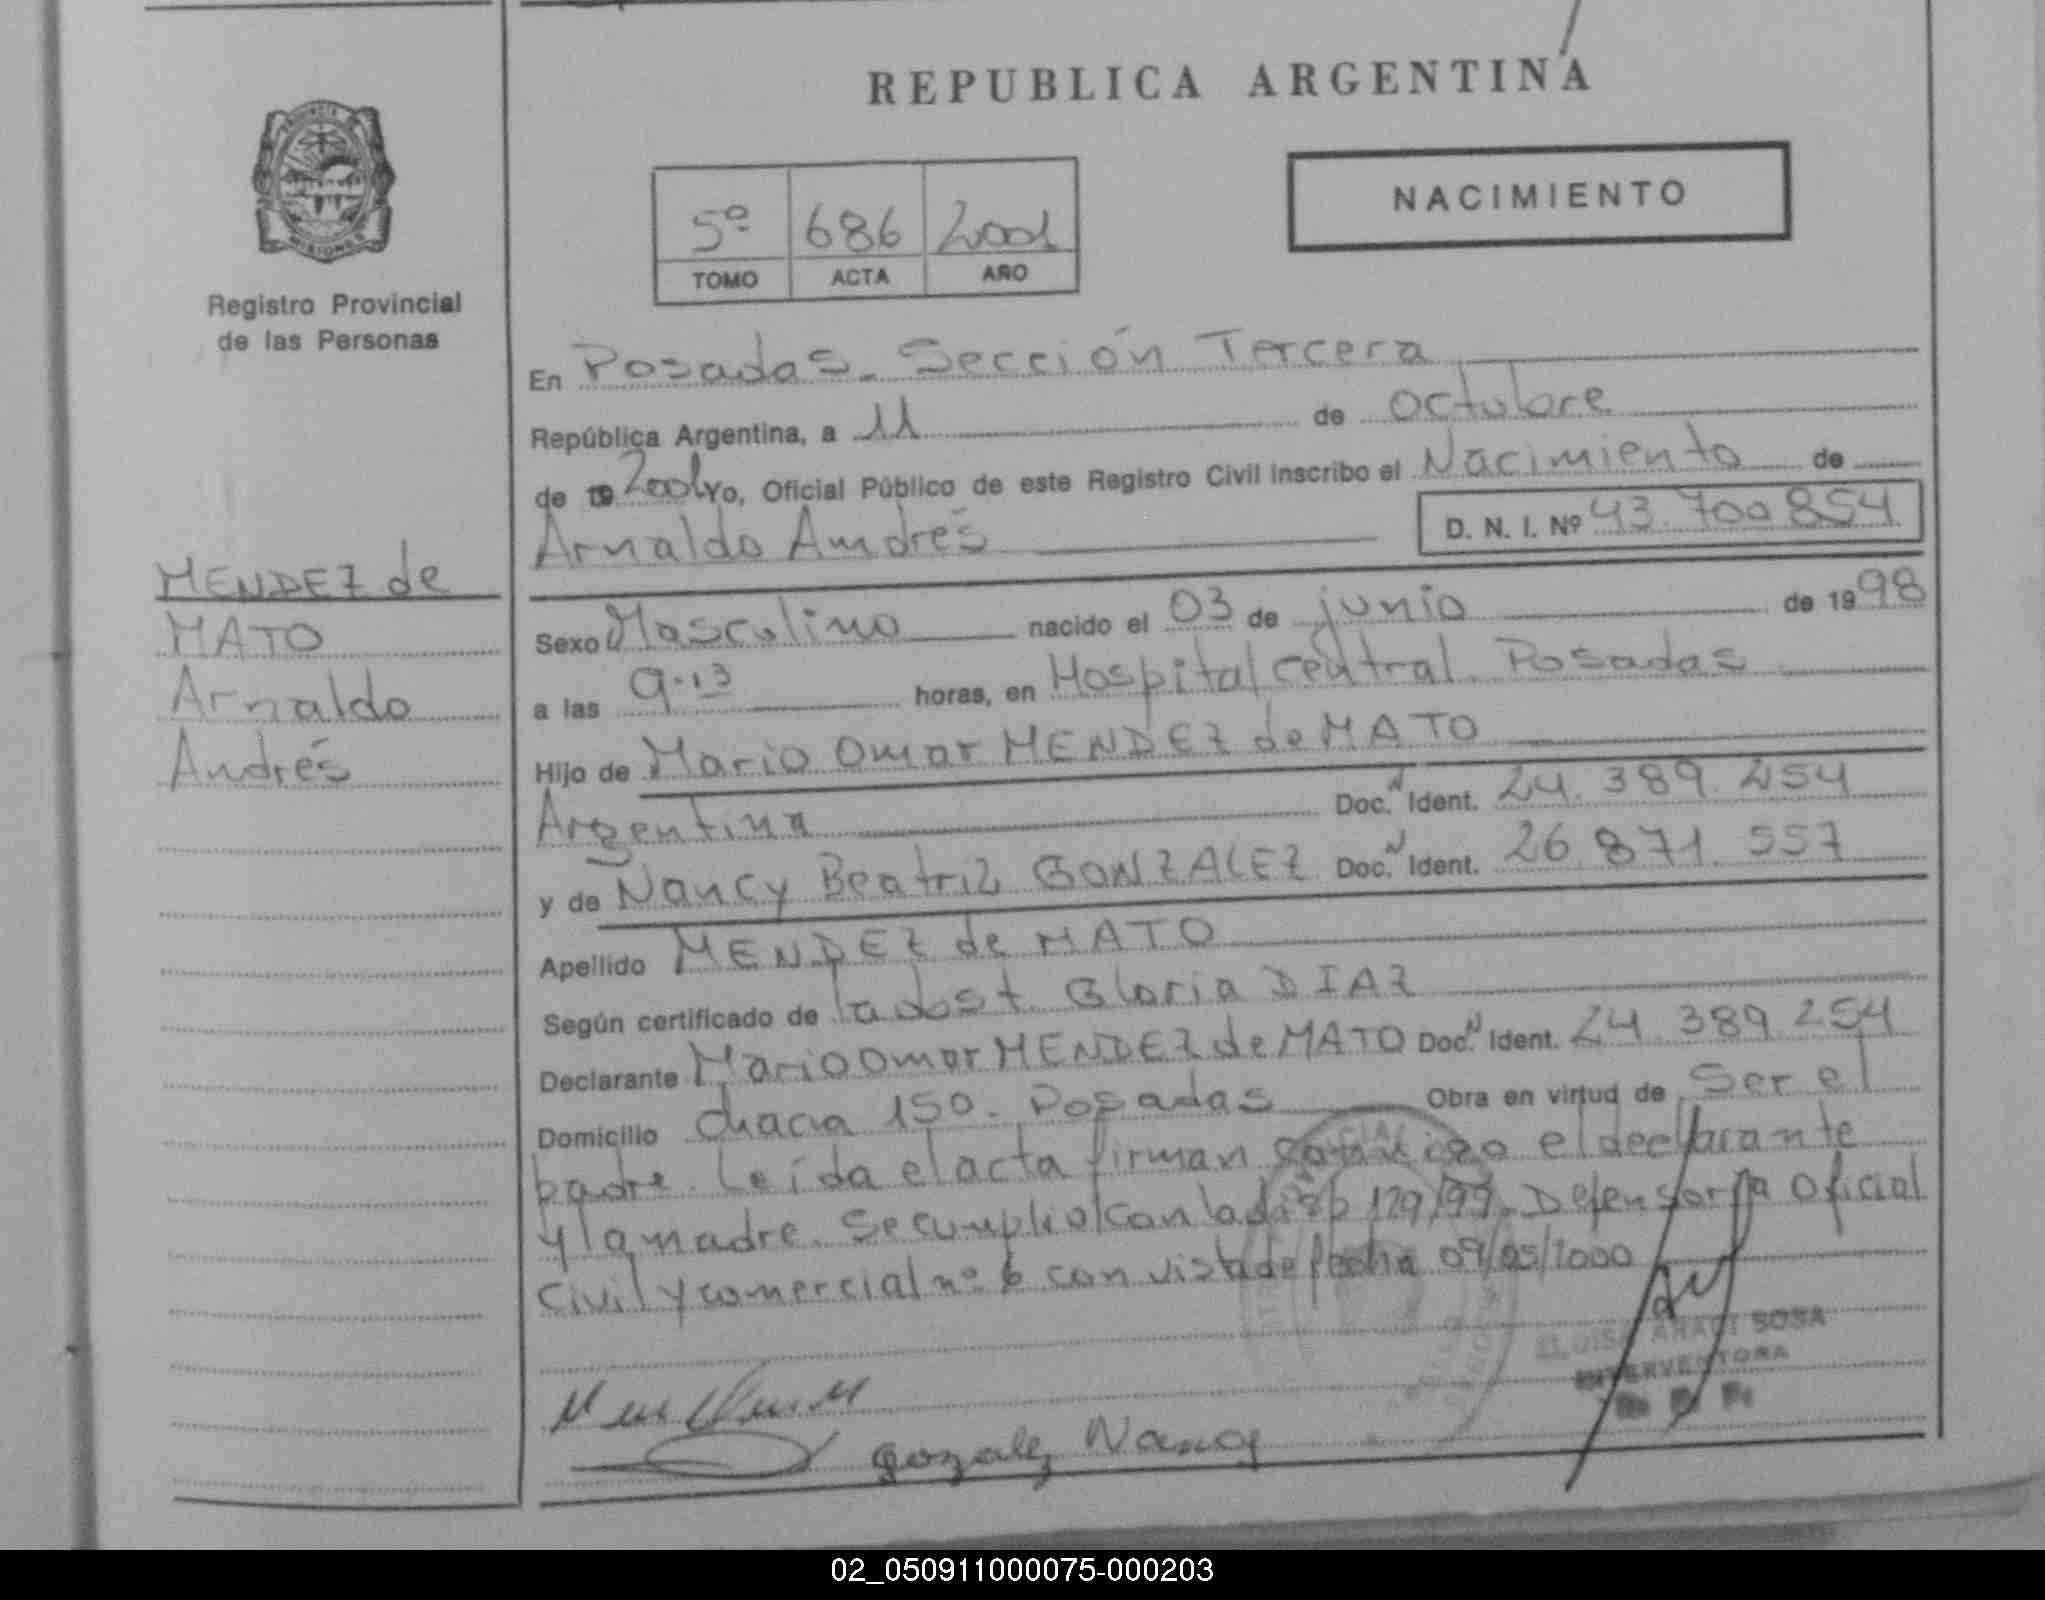 REPUBLICA ARGENTINA
NACIMIENTO
5º 686 2001
TOMO ACTA AÑO
Registro Provincial
de las Personas
MENDEZ de
MATO
Arnaldo
Andrés
En Posadas - Sección Tercera
República Argentina, a 11 de octubre
de 19 2001 yo, Oficial Público de este Registro Civil inscribo el Nacimiento de
Arnaldo Andrés D. N. I. Nº 43.700 854
Sexo Masculino nacido el 03 de junio de 1998
a las 9.13 horas, en Hospital central. Posadas
Hijo de Mario Omar MENDEZ de MATO
Argentina Doc. Ident. 24.389.254
y de Nancy Beatriz GONZALEZ Doc. Ident. 26.871.557
Apellido MENDEZ de MATO
Según certificado de la obst. Gloria DIAZ
Declarante Mario Omar MENDEZ de MATO Doc. Ident. 24.389.254
Domicilio chacra 150. Posadas Obra en virtud de Ser el
padre. Leída el acta firman conmigo el declarante
y la madre. Se cumplió con la disp 129/99. Defensoría Oficial
Civil y comercial nº 6 con vista de fecha 09/05/2000
gozalez Nancy
SOSA
INTERVENTORA
02_050911000075-000203